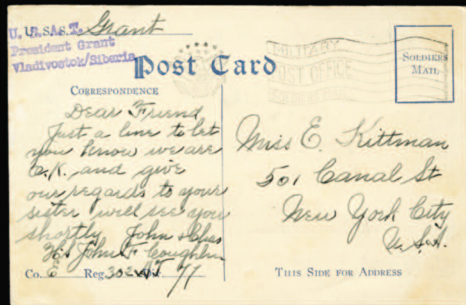 U.S.A.S. Grant
U. S. A. T.
President Grant
Vladivostok/Siberia
Post Card
MILITARY
POST OFFICE
SOLDIERS
MAIL
CORRESPONDENCE
Dear Friend
Just a line to let
you know we are
O.K. and give
our regards to your
sister will see you
shortly John & Chas
John F. Coughlin
Co. C Reg. 302
Miss E. Kittman
501 Canal St
New York City
U.S.A.
THIS SIDE FOR ADDRESS